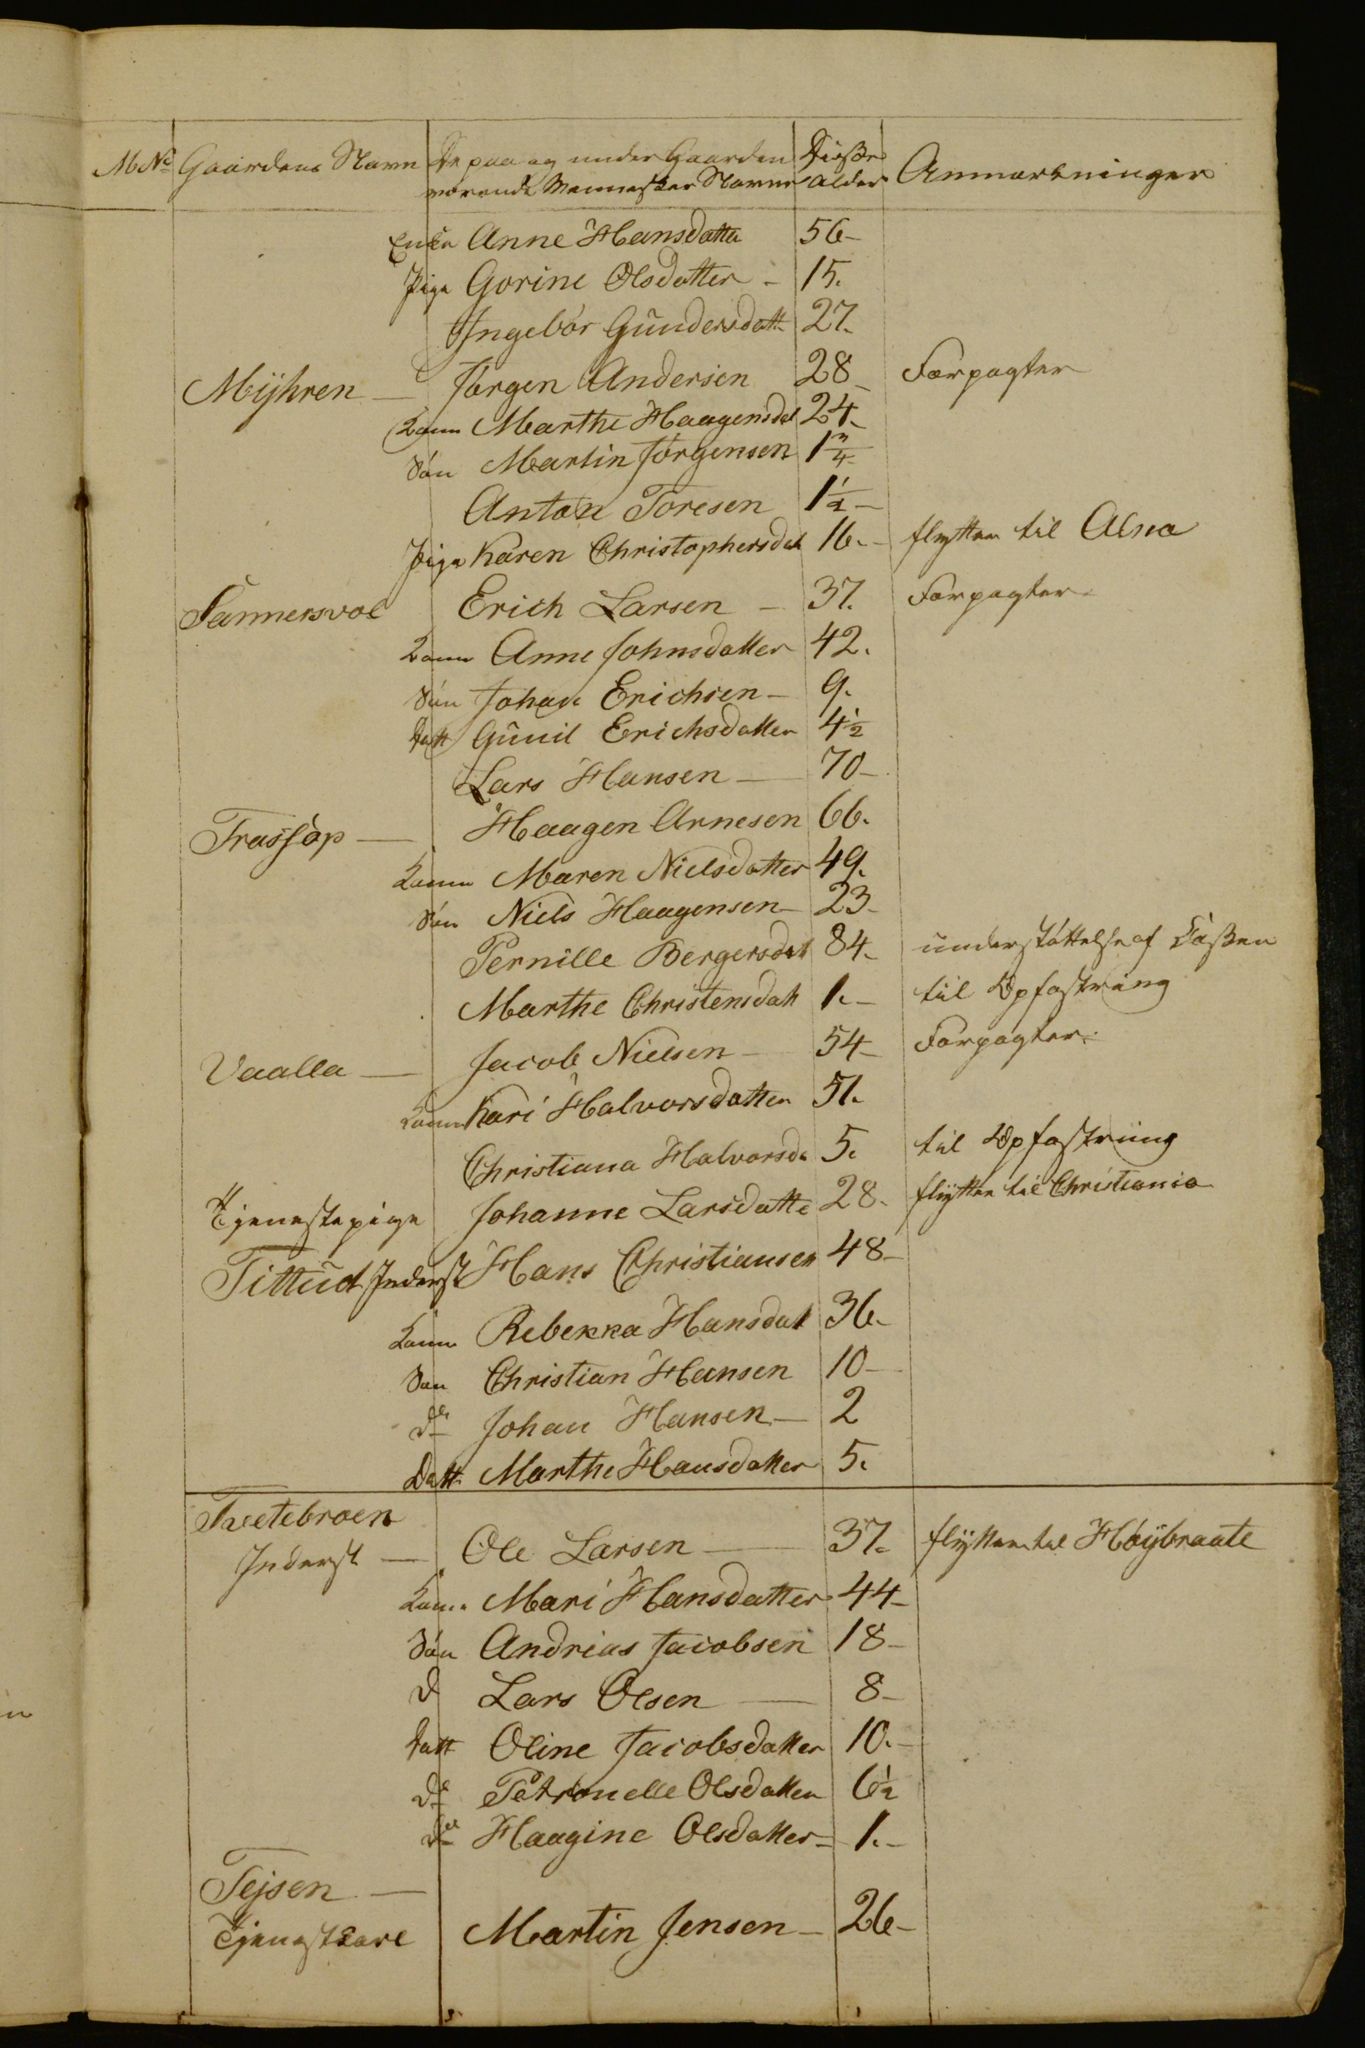 MNo Gaardens Navn De paa og under Gaarden Disses Anmærkninger
værende Menneskers Navne Alder
Enke Anne Hansdatter 56-
Pige Gorine Olsdatter - 15.
Ingebor Gundersdatt 27.
Mÿhren — Jørgen Andersen 28- Forpagter
Kone Marthe Haagensdat 24-
Søn Martin Jørgensen 1 3/4
Anton Toresen 1 1/2 -
Pige Karen Christophersdat 16.- flytter til Alna
Erich Larsen - 37. Forpagter
Kone Anne Johnsdatter 42.
Søn Johan Erichsen - 9.
Datt Gunil Erichsdatter 4 1/2
Lars Hansen — 70-
Trasjop — Haagen Arnesen 66.
Kone Maren Nielsdatter 49.
Søn Niels Haagensen - 23-
Pernille Bergersdat 84- understøttelse af Caßen
Marthe Christensdatt 1.- til Opfostring
Vaalla — Jacob Nielsen - 54- Forpagter.
Kone Kari Halvorsdatter 51.
Christiana Halvorsda 5. til Opfostring
Tjenestepige Johanne Larsdatte 28- flytter til Christiania
Tittud Inderst Hans Christiansen 48-
Kone Rebekka Hansdat 36-
Søn Christian Hansen 10-
do Johan Hansen - 2
Datt Marthe Hansdatter 5.
Tvetebroen
Inderst — Ole Larsen — 37. flytter til Høÿbraate
Kone Mari Hansdatter 44-
Søn Andrias Jacobsen 18-
d Lars Olsen — 8-
Datt Oline Jacobsdatter 10.-
do Petronelle Olsdatter 6 1/2
do Haagine Olsdatter - 1.-
Tejsen —
Tjenestkarl Martin Jensen - 26-